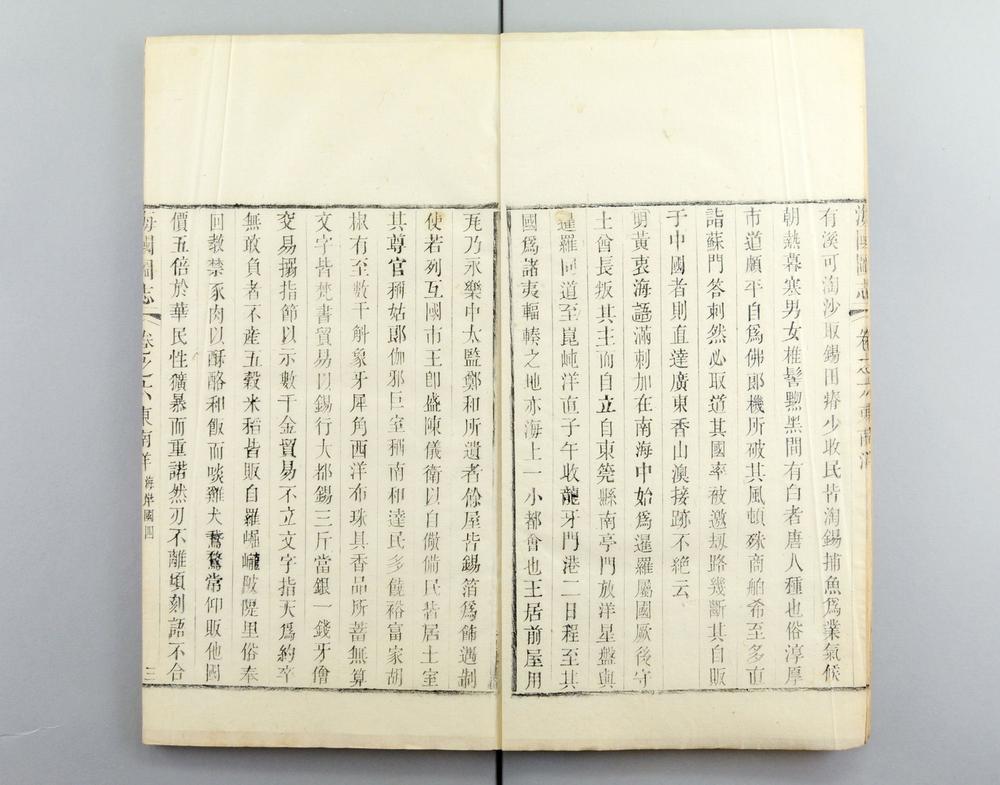 海國圖志 卷之六 東南洋
有溪可淘沙取錫田瘠少收民皆淘錫捕魚爲業氣候
朝熱暮寒男女椎髻黝黑間有白者唐人種也俗淳厚
市道頗平自爲佛郎機所破其風頓殊商舶希至多直
詣蘇門答剌然必取道其國率被邀刼路幾斷其自販
于中國者則直達廣東香山澳接跡不絕云
明黃衷海語滿剌加在南海中始爲暹羅屬國厥後守
土酋長叛其主而自立自東筦縣南亭門放洋星盤與
暹羅同道至崑屯洋直子午收龍牙門港二日程至其
國爲諸夷輻輳之地亦海上一小都會也王居前屋用
瓦乃永樂中太監鄭和所遺者餘屋皆錫箔爲飾遇制
使若列互國市王卽盛陳儀衛以自儆備民皆居土室
其尊官稱姑郎伽邪巨室稱南和達民多饒裕富家胡
椒有至數千斛象牙犀角西洋布珠具香品所蓄無算
文字皆梵書貿易以錫行大都錫三斤當銀一錢牙儈
交易搦指節以示數千金貿易不立文字指天爲約卒
無敢負者不產五穀米稻皆販自羅崛㠥陂隄里俗奉
回敎禁豕肉以酥酪和飯而啖雞犬鵞鶩常仰販他國
價五倍於華民性獷暴而重諾然刃不離頃刻語不合
海國圖志 卷之六 東南洋 海岸國四 三